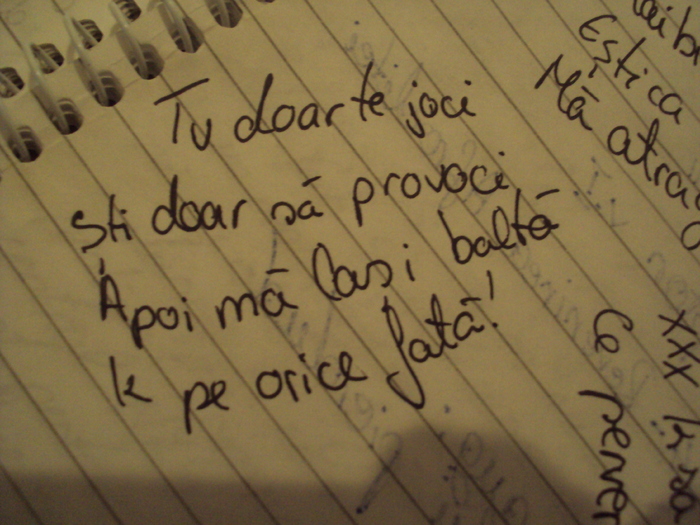 Tu doar te joci
ști doar să provoci
Apoi mă lași baltă
k pe orice fată!
Ești ca
Mă atrag
xxx
Ce